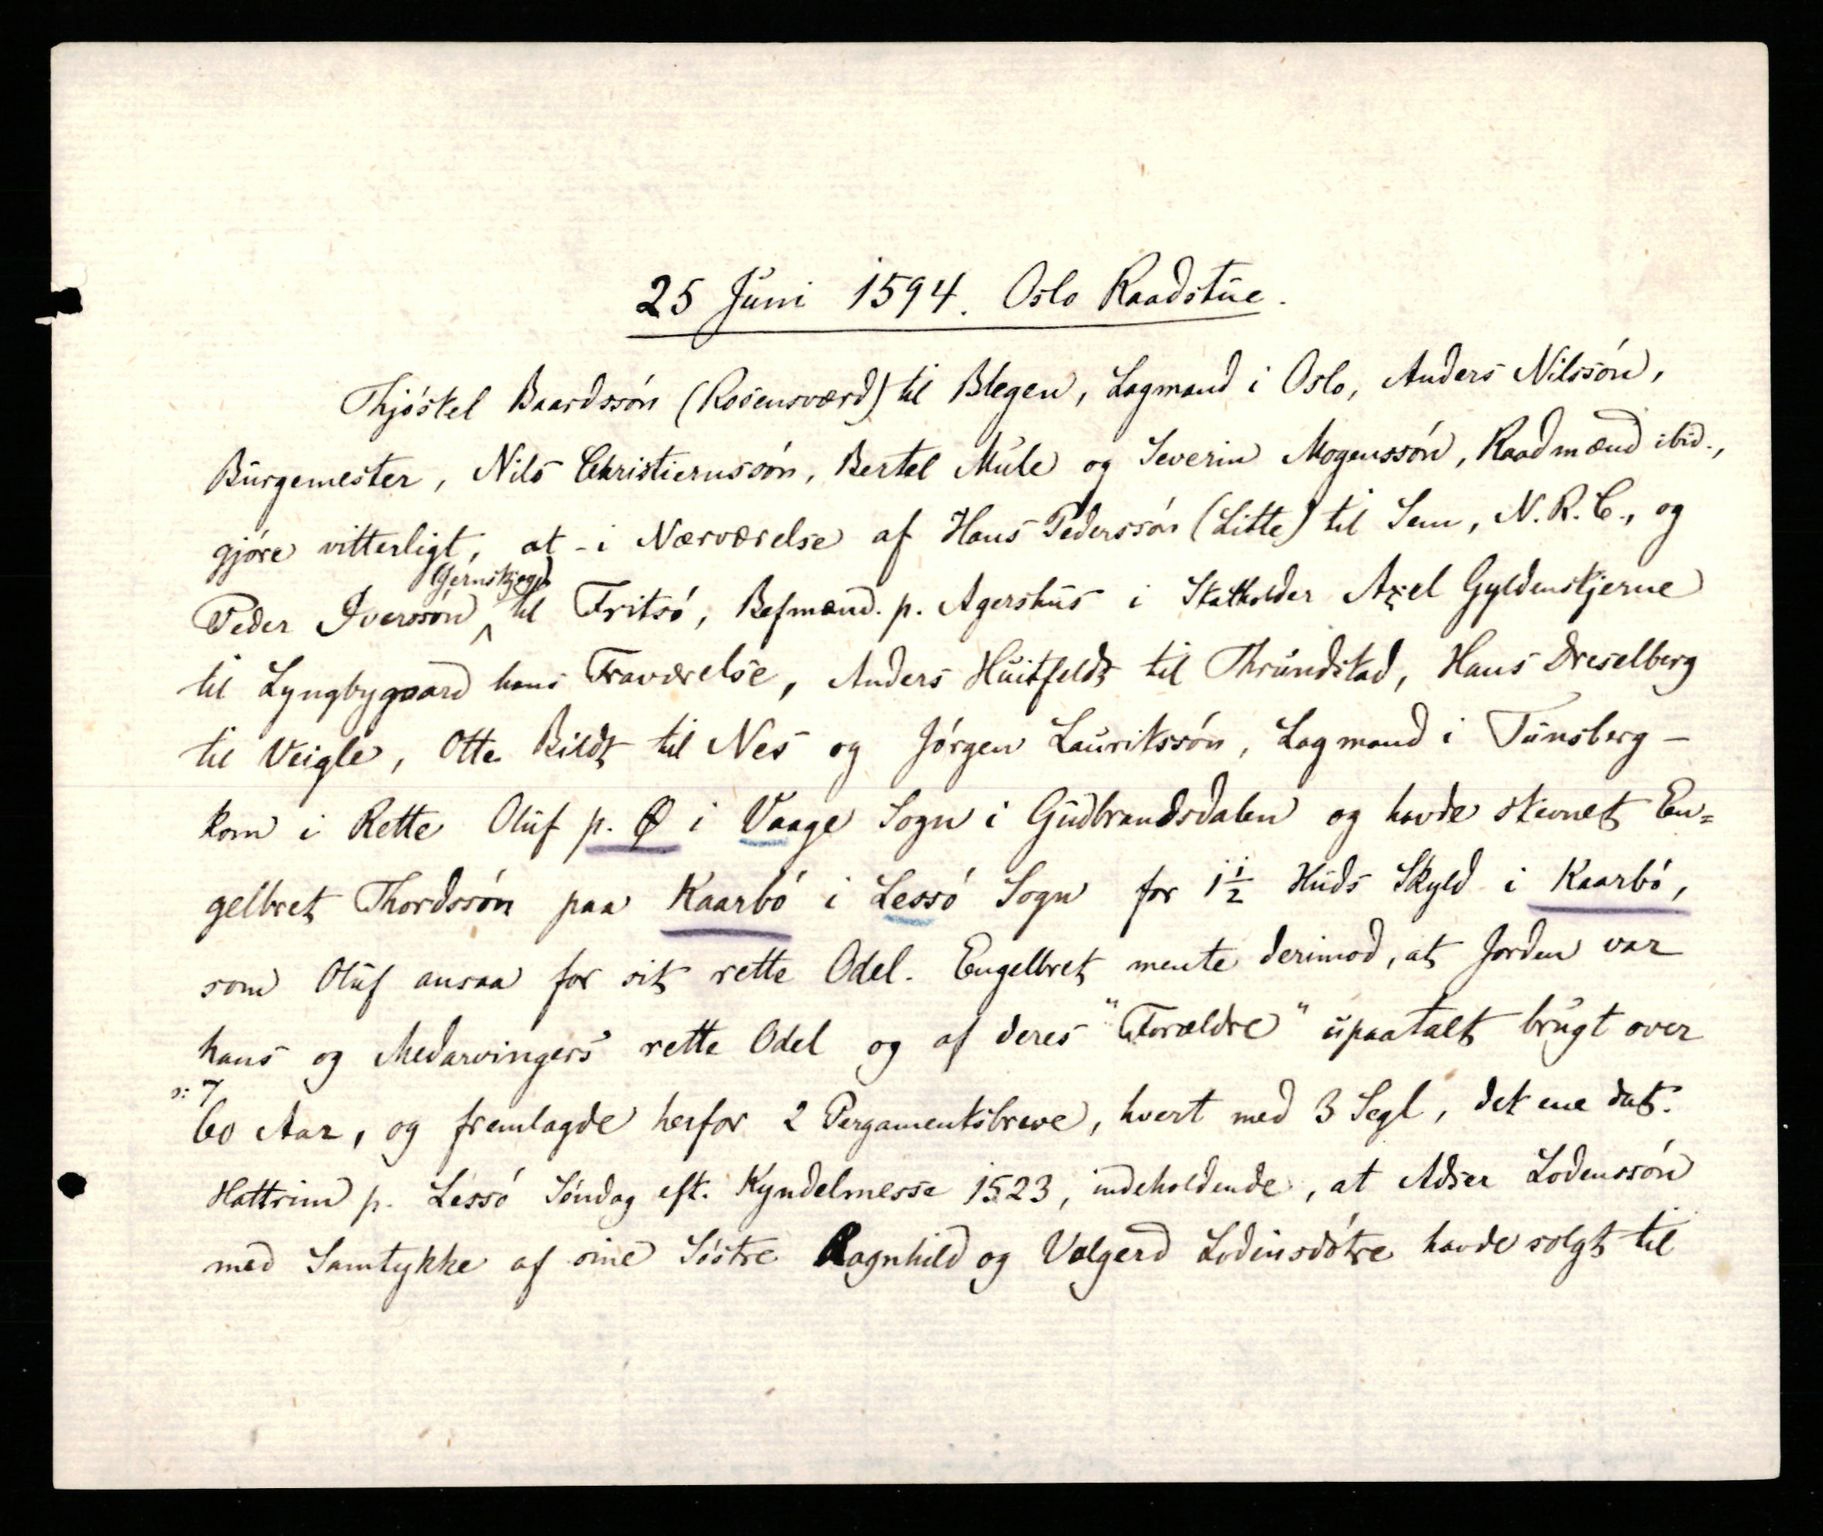 25 Juni 1594. Oslo Raadstue.
Thjóstel Baardssón (Rosensværd) til Blegen, Lagmand i Oslo, Anders Nilssón,
Burgemester, Nils Christiernssón, Bertel Mule og Severin Mogenssón, Raadmænd ibid.,
gjóre vitterligt, at - i Nærværelse af Hans Pederssón (Litte) til Sem, N. R. C., og
Peder Iverssón (Jernskjeg) til Fritsó, Befmænd. p. Agershus i Statholder Axel Gyldenstjerne
til Lyngbygaard hans Fraværelse, Anders Huitfeldt til Thrundstad, Hans Dreselberg
til Veigle, Otte Bildt til Nes og Jórgen Laurikssón, Lagmand i Tunsberg -
kom i Rette Oluf p. Ø i Vaage Sogn i Gudbrandsdalen og havde stevnet En=
gelbret Thordssón paa Kaarbó i Lessó Sogn for 1½ Huds Skyld i Kaarbó,
som Oluf ansaa for sit rette Odel. Engelbret mente derimod, at Jorden var
hans og Medarvingers rette Odel og af deres "Forældre" upaatalt brugt over
ɔ: 7
60 Aar, og fremlagde herfor 2 Pergamentsbreve, hvert med 3 Segl, det ene dat.
Hattrim p. Lessó Sóndag eft. Kyndelmesse 1523, indeholdende, at Adser Lodenssón
med Samtykke af sine Sóstre Ragnhild og Valgerd Lodinsdótre havde solgt til